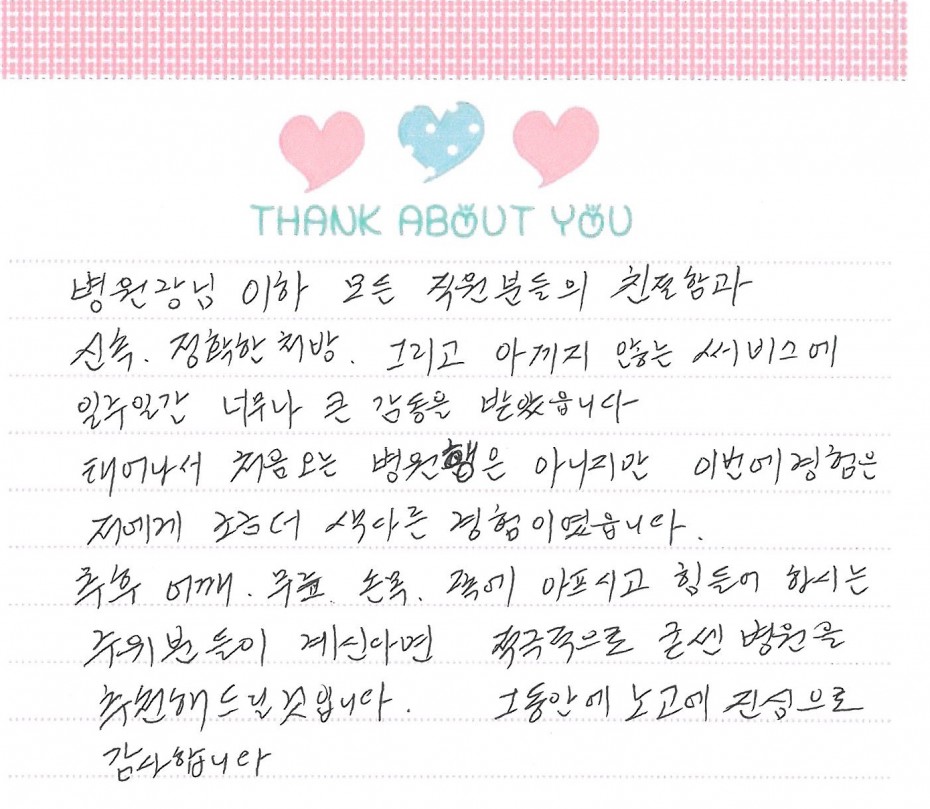 THANK ABOUT YOU
병원장님 이하 모든 직원분들의 친절함과
신속. 정확한 처방. 그리고 아끼지 않는 써비스에
일주일간 너무나 큰 감동을 받았읍니다
태어나서 처음오는 병원행은 아니지만 이번에 경험은
저에게 조금더 색다른 경험이였읍니다.
추후 어깨. 무릎. 손목. 쪽에 아프시고 힘들어 하시는
주위분들이 계신다면 적극적으로 굳센병원을
추천해드릴것입니다. 그동안에 노고에 진심으로
감사합니다